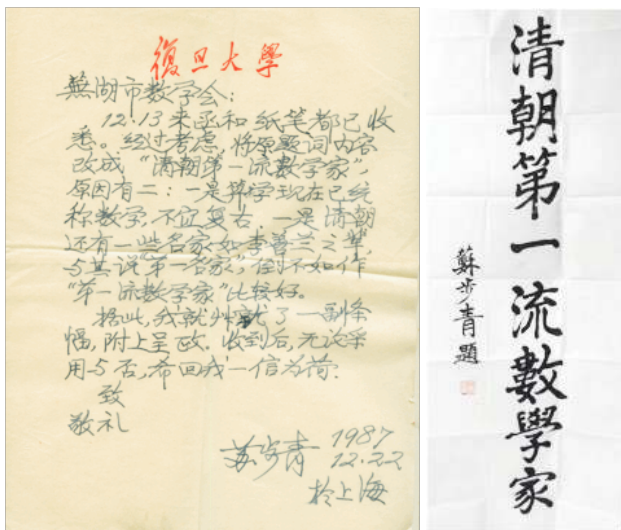 復旦大學
蕪湖市数学会:
12.13来函和纸笔都已收
悉。经过考虑,将原题词内容
改成“清朝第一流数学家”,
原因有二:一是算学现在已统
称数学,不宜复古,一是清朝
还有一些名家如李善兰之辈
与其说“第一名家”,倒不如作
“第一流数学家”比较好。
据此,我就草就了一副条
幅,附上呈政。收到后,无论采
用与否,希回我一信为荷!
致
敬礼
苏步青 1987
12.22
於上海
清朝第一流數學家
蘇步青題